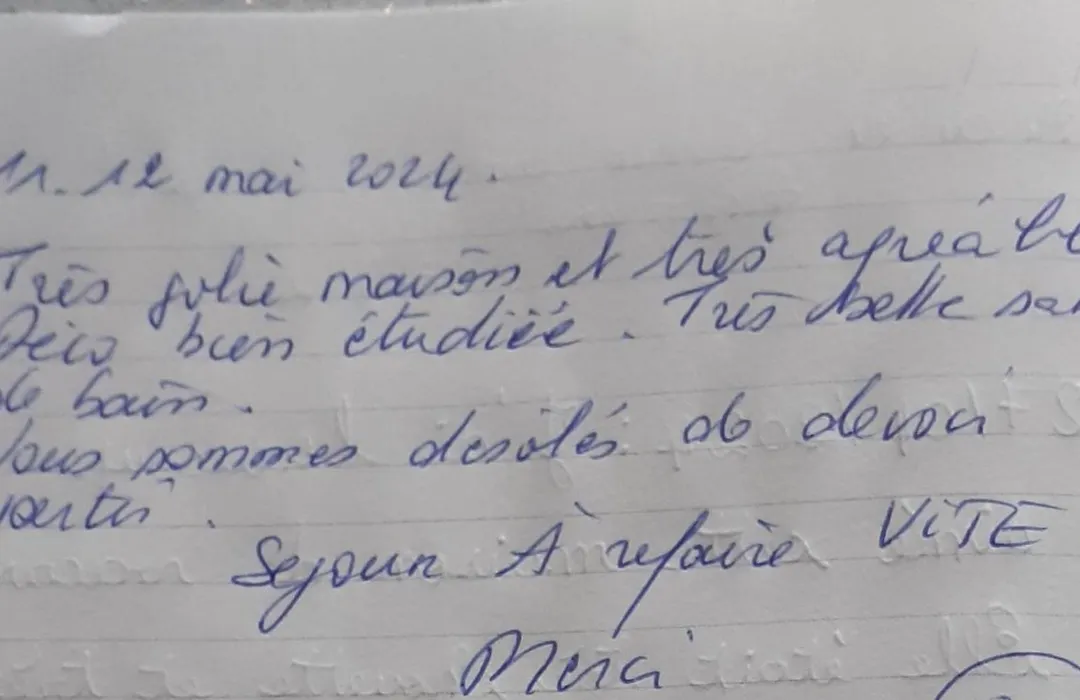 11. 12 mai 2024.
Très jolie maison et très agréable
Déco bien étudiée. Très belle sal
de bain.
Nous sommes desolés de devoir
partir.
Sejour A refaire ViTE
Merci